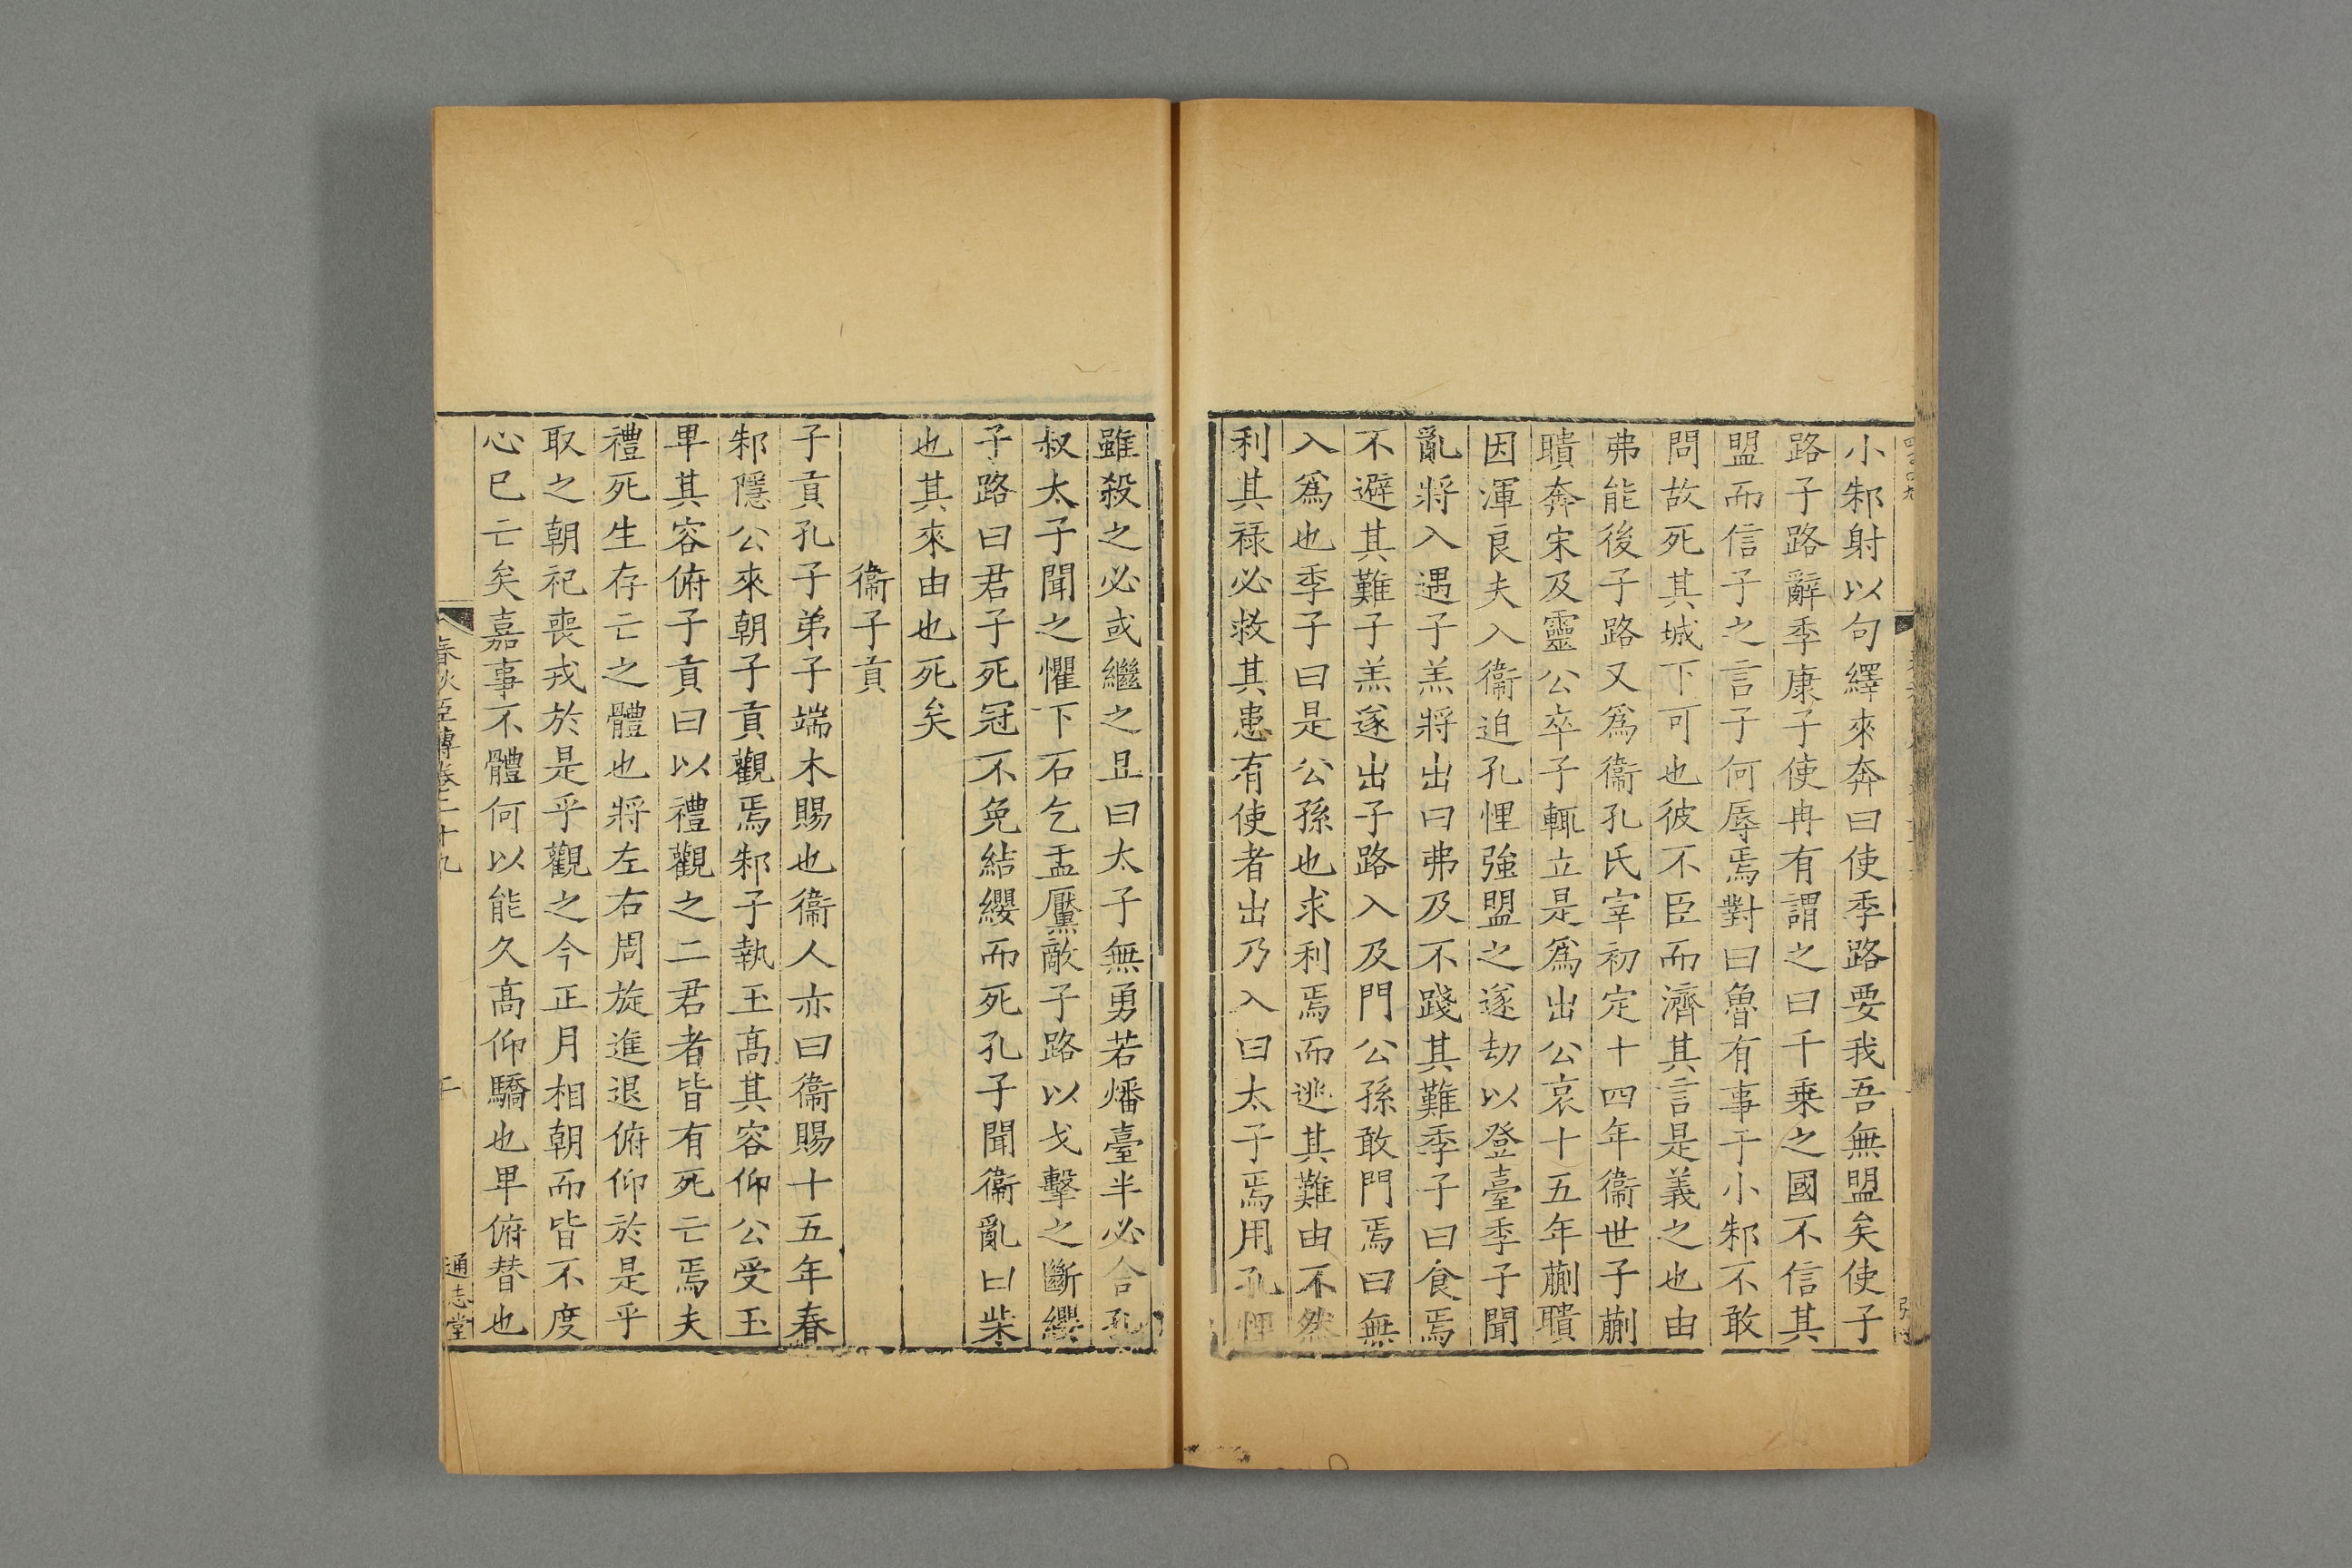 小邾射以句繹來奔曰使季路要我吾無盟矣使子
路子路辭季康子使冉有謂之曰千乗之國不信其
盟而信子之言子何辱焉對曰魯有事于小邾不敢
問故死其城下可也彼不臣而濟其言是義之也由
弗能後子路又爲衞孔氏宰初定十四年衞世子蒯
聵奔宋及靈公卒子輒立是爲出公哀十五年蒯聵
因渾良夫入衞迫孔悝強盟之遂劫以登臺季子聞
亂將入遇子羔將出曰弗及不踐其難季子曰食焉
不避其難子羔遂出子路入及門公孫敢門焉曰無
入爲也季子曰是公孫也求利焉而逃其難由不然
利其祿必救其患有使者出乃入曰太子焉用孔悝
雖殺之必或繼之且曰太子無勇若燔臺半必舍孔
叔太子聞之懼下石乞盂黶敵子路以戈擊之斷纓
子路曰君子死冠不免結纓而死孔子聞衞亂曰柴
也其來由也死矣
衞子貢
子貢孔子弟子端木賜也衞人亦曰衞賜十五年春
邾隱公來朝子貢觀焉邾子執玉高其容仰公受玉
卑其容俯子貢曰以禮觀之二君者皆有死亡焉夫
禮死生存亡之體也將左右周旋進退俯仰於是乎
取之朝祀喪戎於是乎觀之今正月相朝而皆不度
心已亡矣嘉事不體何以能久高仰驕也卑俯替也
春秋臣傳卷二十九
通志堂